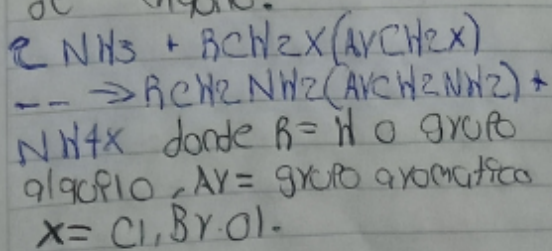 2 NH3 + RCH2X(ArCH2X)
-- → RCH2NH2(ArCH2NH2) +
NH4X donde R = H o grupo
alqopio, Ar = grupo aromatico
X = Cl, Br. OI.